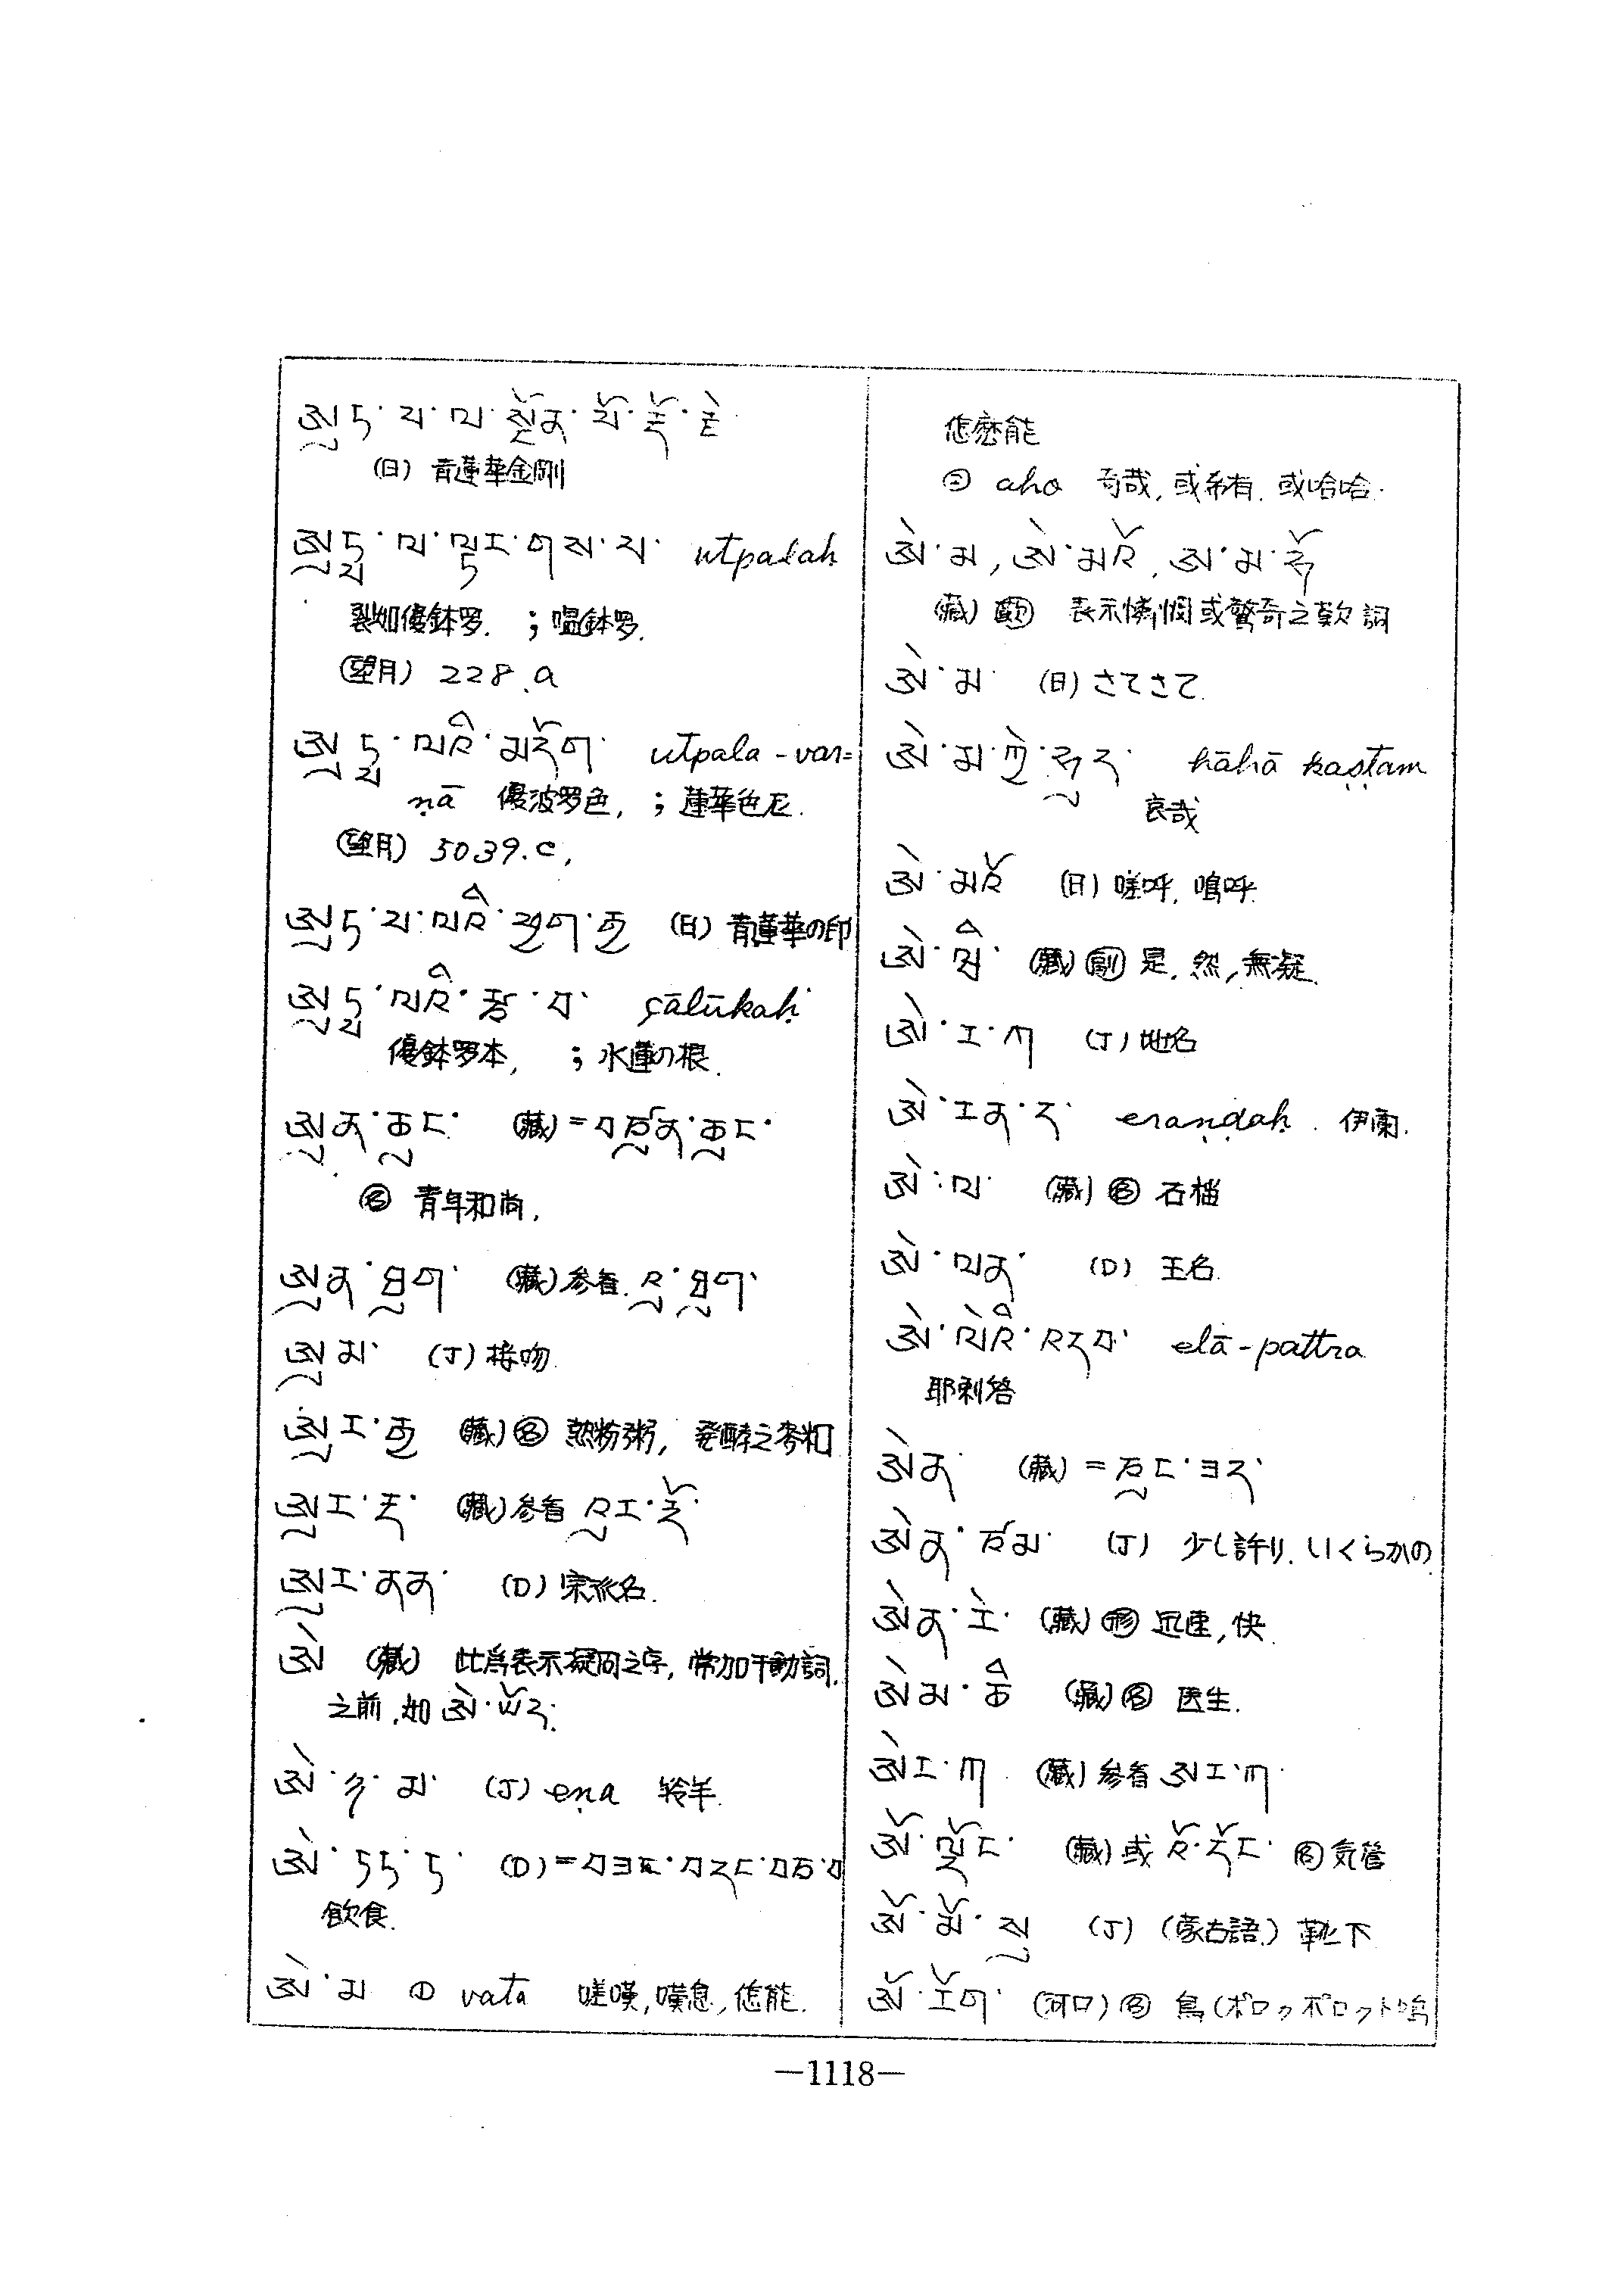 ཨུད་པ་ལ་སྔོན་པོ་རྡོ་རྗེ་
(日) 青蓮華金剛
ཨུཏྤ་ལ་ལྟར་གས་པ་ utpalaḥ
裂如優鉢罗. ; 嗢鉢罗.
(望月) 228.a
ཨུཏྤ་ལའི་མདོག་ utpala-var=
ṇā 優波罗色, ; 蓮華色尼.
(望月) 5039.c,
ཨུད་པ་ལའི་ཕྱག་རྒྱ (日) 青蓮華の印
ཨུཏྤ་ལའི་རྩ་བ་ çālūkaḥ
優鉢罗本, ; 水蓮の根.
ཨུན་ཆུང་ (藏) = བཙུན་ཆུང་
名 青年和尚.
ཨུན་ཐུག་ (藏) 参看. འུ་ཐུག་
ཨུམ་ (J) 接吻.
(藏) 名 熟粉粥, 発酵之麥粗
(藏) 参看
ཨུར་ནན་ (D) 宗派名.
ཨེ (藏) 此為表示疑问之字, 常加于動詞.
之前, 如 ཨེ་ཡོད.
ཨེ་ཎ་མ་ (J) eṇa 羚羊.
(D) = བཟའ་བ
飲食.
ཨེ་མ ① vata 嗟嘆, 嘆息, 怎能.
怎麽能
② aho 奇哉, 或希有. 或哈哈.
ཨེ་མ, ཨེ་མའོ, ཨ་མ་ཧོ
(藏) 歎 表示憐憫或驚奇之歎詞
ཨེ་མ་ (日) さてさて.
ཨེ་མ་ཀྱེ་ཧུད་ hāhā kaṣṭam
哀哉
ཨེ་མའོ (日) 嗟呼, 嗚呼.
(藏) 副 是, 然, 無疑.
ཨེ་ར་ཀ (J) 地名
ཨེ་རན་ད་ eraṇḍaḥ. 伊蘭.
ཨེ་ལ་ (藏) 名 石楷
ཨེ་ལན་ (D) 王名.
ཨེ་ལེའི་འདབ་ elā-pattra
耶剌答
ཨེན་ (藏) = ཙུང་ཟད་
ཨེན་ཙམ་ (J) 少し許り, いくらかの
ཨེན་རེ་ (藏) 形 迅速, 快.
ཨེམ་ཆི (藏) 名 医生.
ཨེར་ཀ (藏) 参看 ཨར་ཀ་
ཨོ་ལྡོང་ (藏) 或 འོ་དོང་ 名 気管
ཨོ་མོ་སུ (J) (蒙古語) 靴下
ཨོ་རོག་ (河口) 名 鳥 (ポロックポロット鳴
—1118—